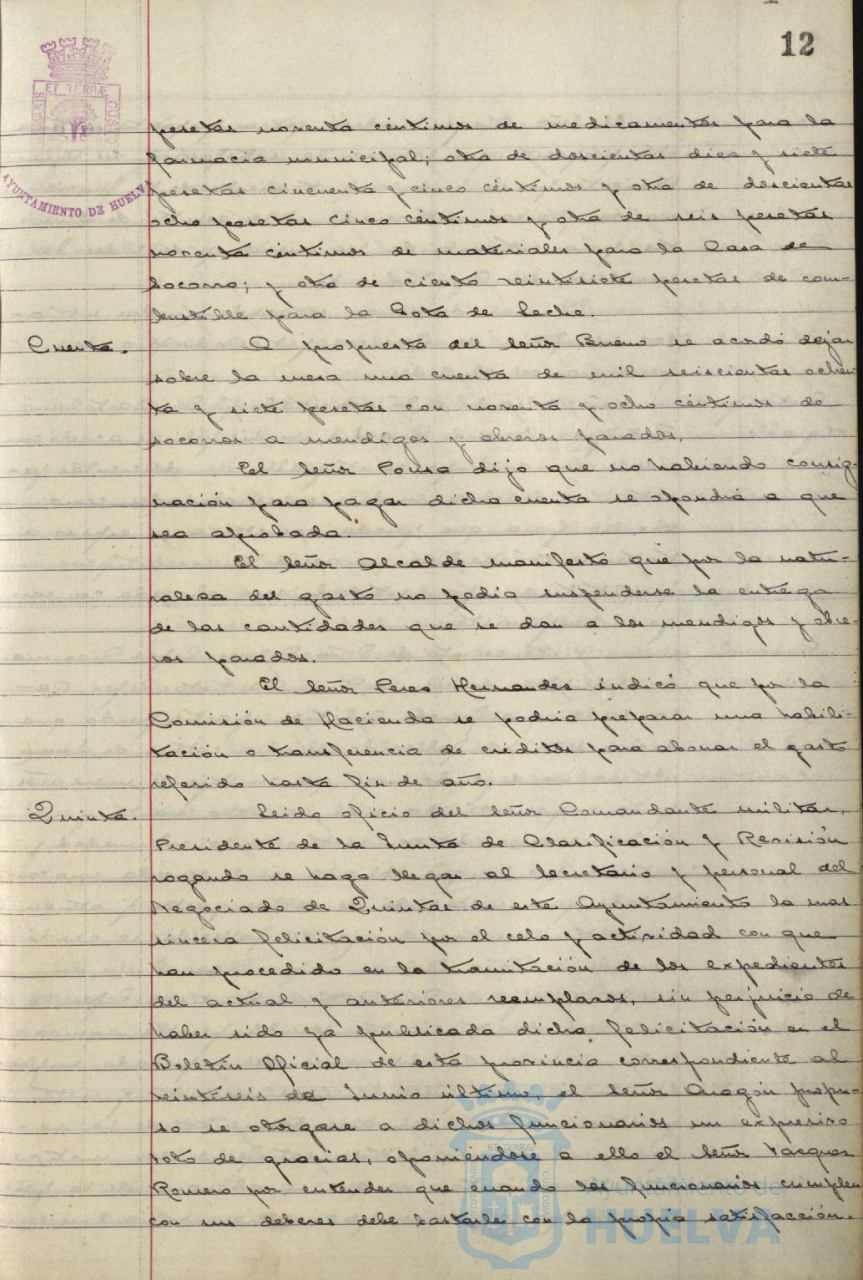 12
PORTUS MARIS ET TERRÆ CUSTODIA
AYUNTAMIENTO DE HUELVA
pesetas noventa céntimos de medicamentos para la
farmacia municipal; otra de doscientas diez y siete
pesetas cincuenta y cinco céntimos y otra de doscientas
ocho pesetas cinco céntimos y otra de seis pesetas
noventa céntimos de materiales para la Casa de
Socorro; y otra de ciento veintisiete pesetas de com-
bustible para la Gota de Leche.
Cuenta. A propuesta del Señor Bueno se acordó dejar
sobre la mesa una cuenta de mil seiscientas ochen
ta y siete pesetas con noventa y ocho céntimos de
socorros a mendigos y obreros parados.
El Señor Pousa dijo que no habiendo consig-
nación para pagar dicha cuenta se opondrá a que
sea aprobada.
El Señor Alcalde manifestó que por la natu-
raleza del gasto no podía suspenderse la entrega
de las cantidades que se dan a los mendigos y obre-
ros parados.
El Señor Perez Hernandez indicó que por la
Comisión de Hacienda se podría preparar una habili-
tación o transferencia de créditos para abonar el gasto
referido hasta fin de año.
Quinta. Leido oficio del Señor Comandante militar,
Presidente de la Junta de Clasificación y Revisión
rogando se haga llegar al Secretario y personal del
Negociado de Quintas de este Ayuntamiento la mas
sincera felicitación por el celo y actividad con que
han procedido en la tramitación de los expedientes
del actual y anteriores reemplazos, sin perjuicio de
haber sido ya publicada dicha felicitación en el
Boletín Oficial de esta provincia correspondiente al
veintiseis de Junio último, el Señor Aragón propu-
so se otorgase a dichos funcionarios un expresivo
voto de gracias, oponiéndose a ello el Señor Vazquez
Romero por entender que cuando los funcionarios cumplen
con sus deberes debe bastarle con la propia satisfacción.
Ayuntamiento de
HUELVA